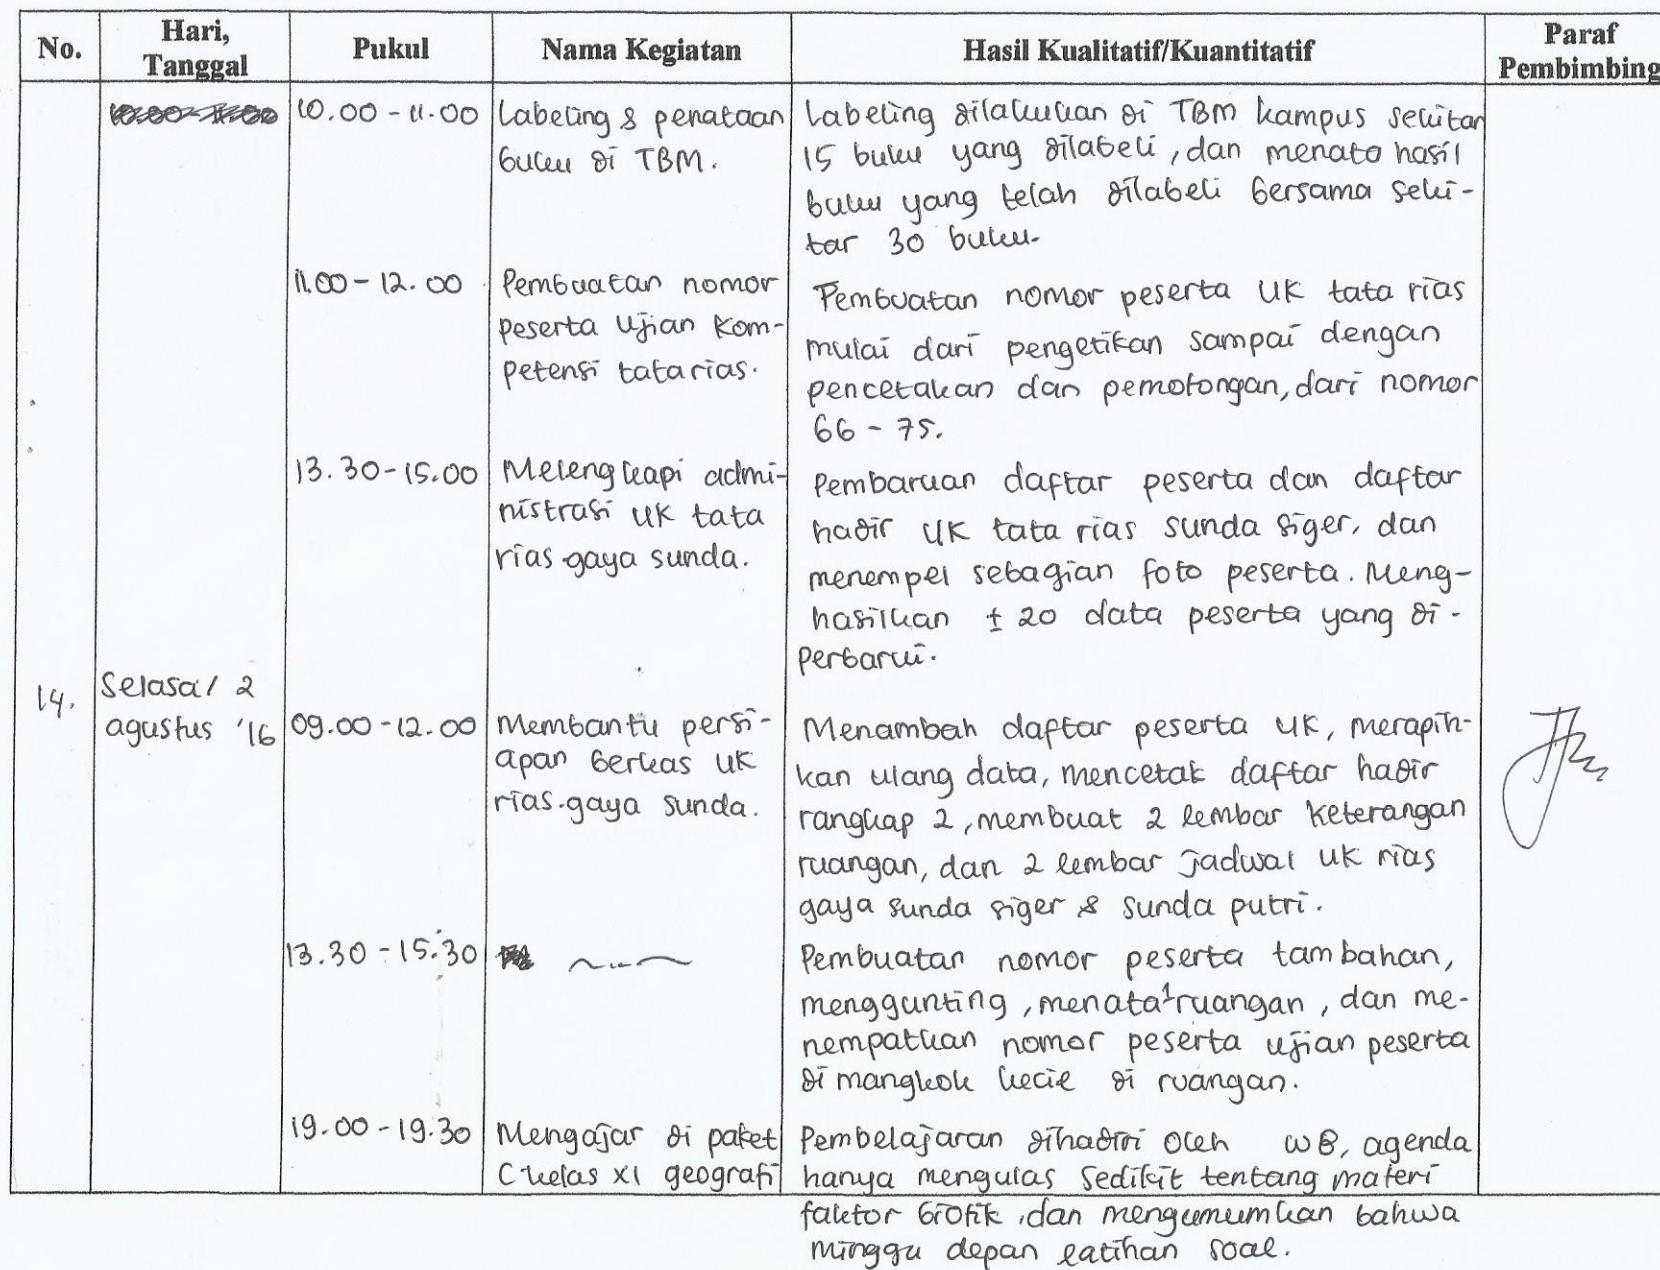 No.
Hari,
Tanggal
Pukul
Nama Kegiatan
Hasil Kualitatif/Kuantitatif
Paraf
Pembimbing
10.00 - 11.00
Labeling & penataan
buku di TBM.
Labeling dilakukan di TBM kampus sekitar
15 buku yang dilabeli, dan menata hasil
buku yang telah dilabeli bersama seki-
tar 30 buku.
11.00 - 12.00
Pembuatan nomor
peserta Ujian Kom-
petensi tata rias.
Pembuatan nomor peserta UK tata rias
mulai dari pengetikan sampai dengan
pencetakan dan pemotongan, dari nomor
66 - 75.
13.30 - 15.00
Melengkapi admi-
nistrasi UK tata
rias gaya sunda.
Pembaruan daftar peserta dan daftar
hadir UK tata rias sunda siger, dan
menempel sebagian foto peserta. Meng-
hasilkan ± 20 data peserta yang di-
perbarui.
14.
Selasa / 2
agustus '16
09.00 - 12.00
Membantu persi-
apan berkas UK
rias gaya sunda.
Menambah daftar peserta UK, merapih-
kan ulang data, mencetak daftar hadir
rangkap 2, membuat 2 lembar keterangan
ruangan, dan 2 lembar jadwal UK rias
gaya sunda siger & sunda putri.
13.30 - 15.30
Pembuatan nomor peserta tambahan,
menggunting, menata 1 ruangan, dan me-
nempatkan nomor peserta ujian peserta
di mangkok kecil di ruangan.
19.00 - 19.30
Mengajar di paket
C kelas XI geografi
Pembelajaran dihadiri oleh WB, agenda
hanya mengulas sedikit tentang materi
faktor biotik, dan mengumumkan bahwa
minggu depan latihan soal.